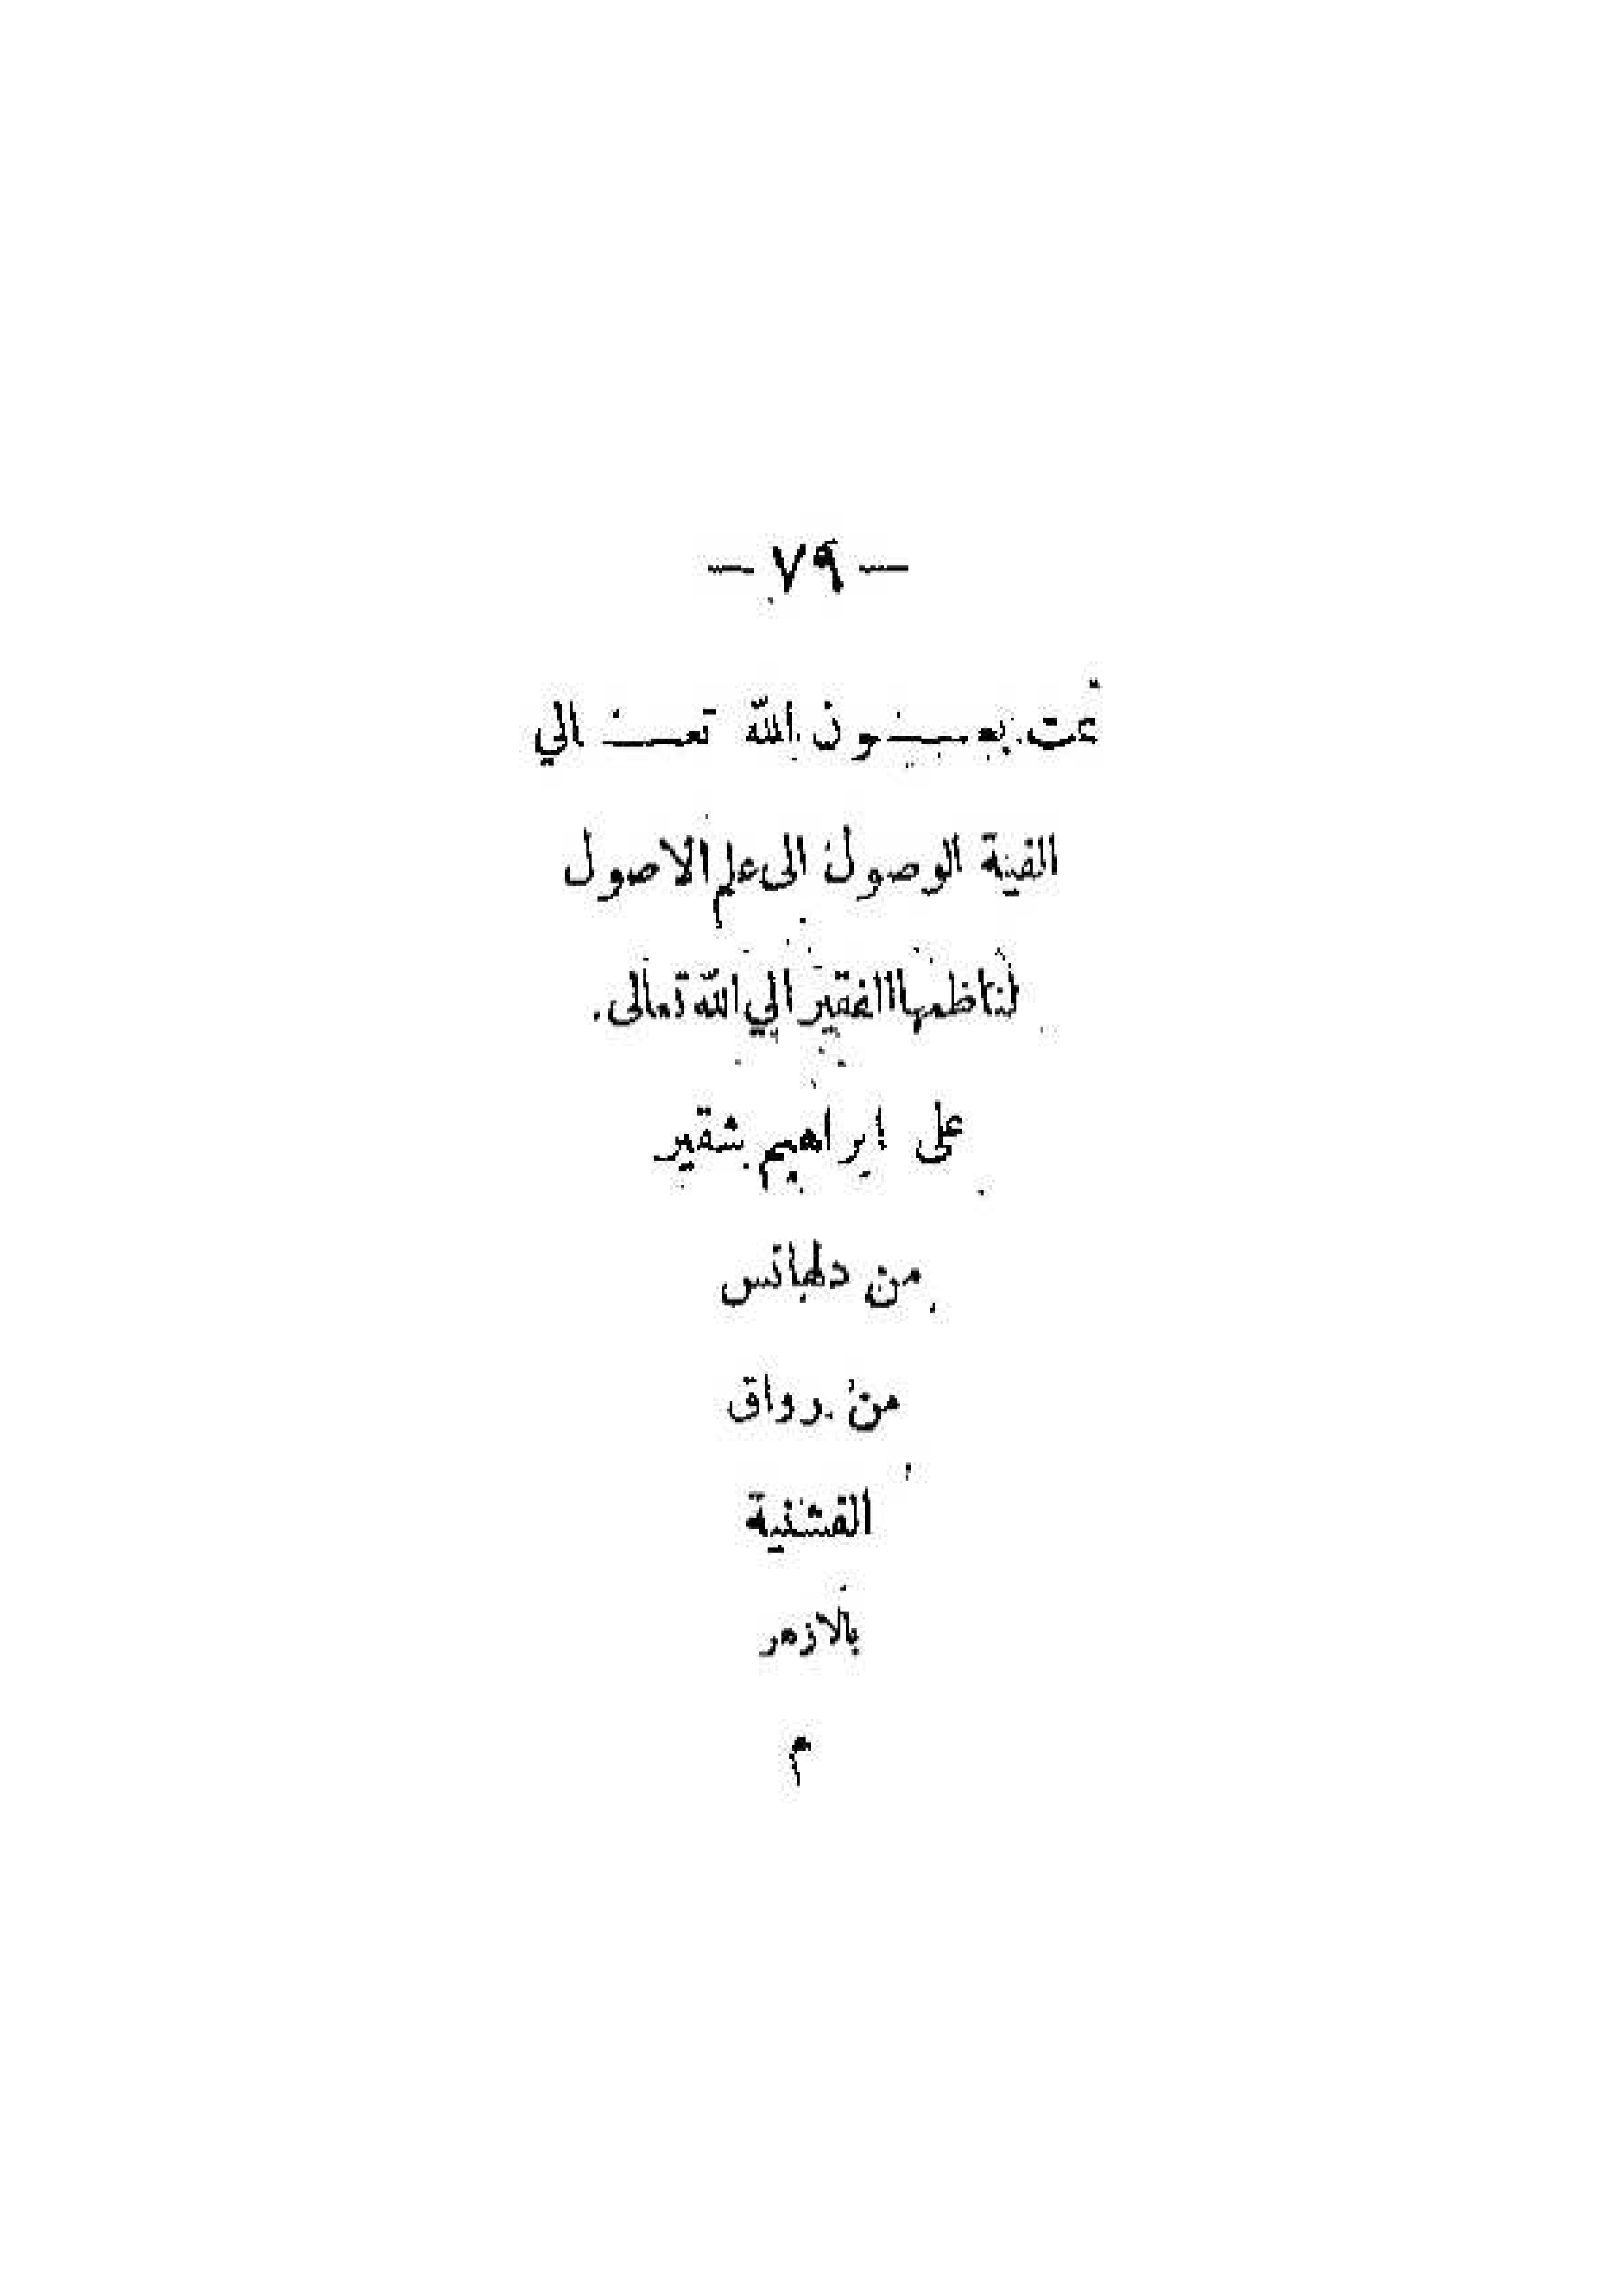 — ٧٩ —
تمت بعــــون الله تعــــالي
الفية الوصول الى علم الاصول
لناظمها الفقير الي الله تعالى
على ابراهيم شقير
من دلهانس
من رواق
الفشنية
بالازهر
م